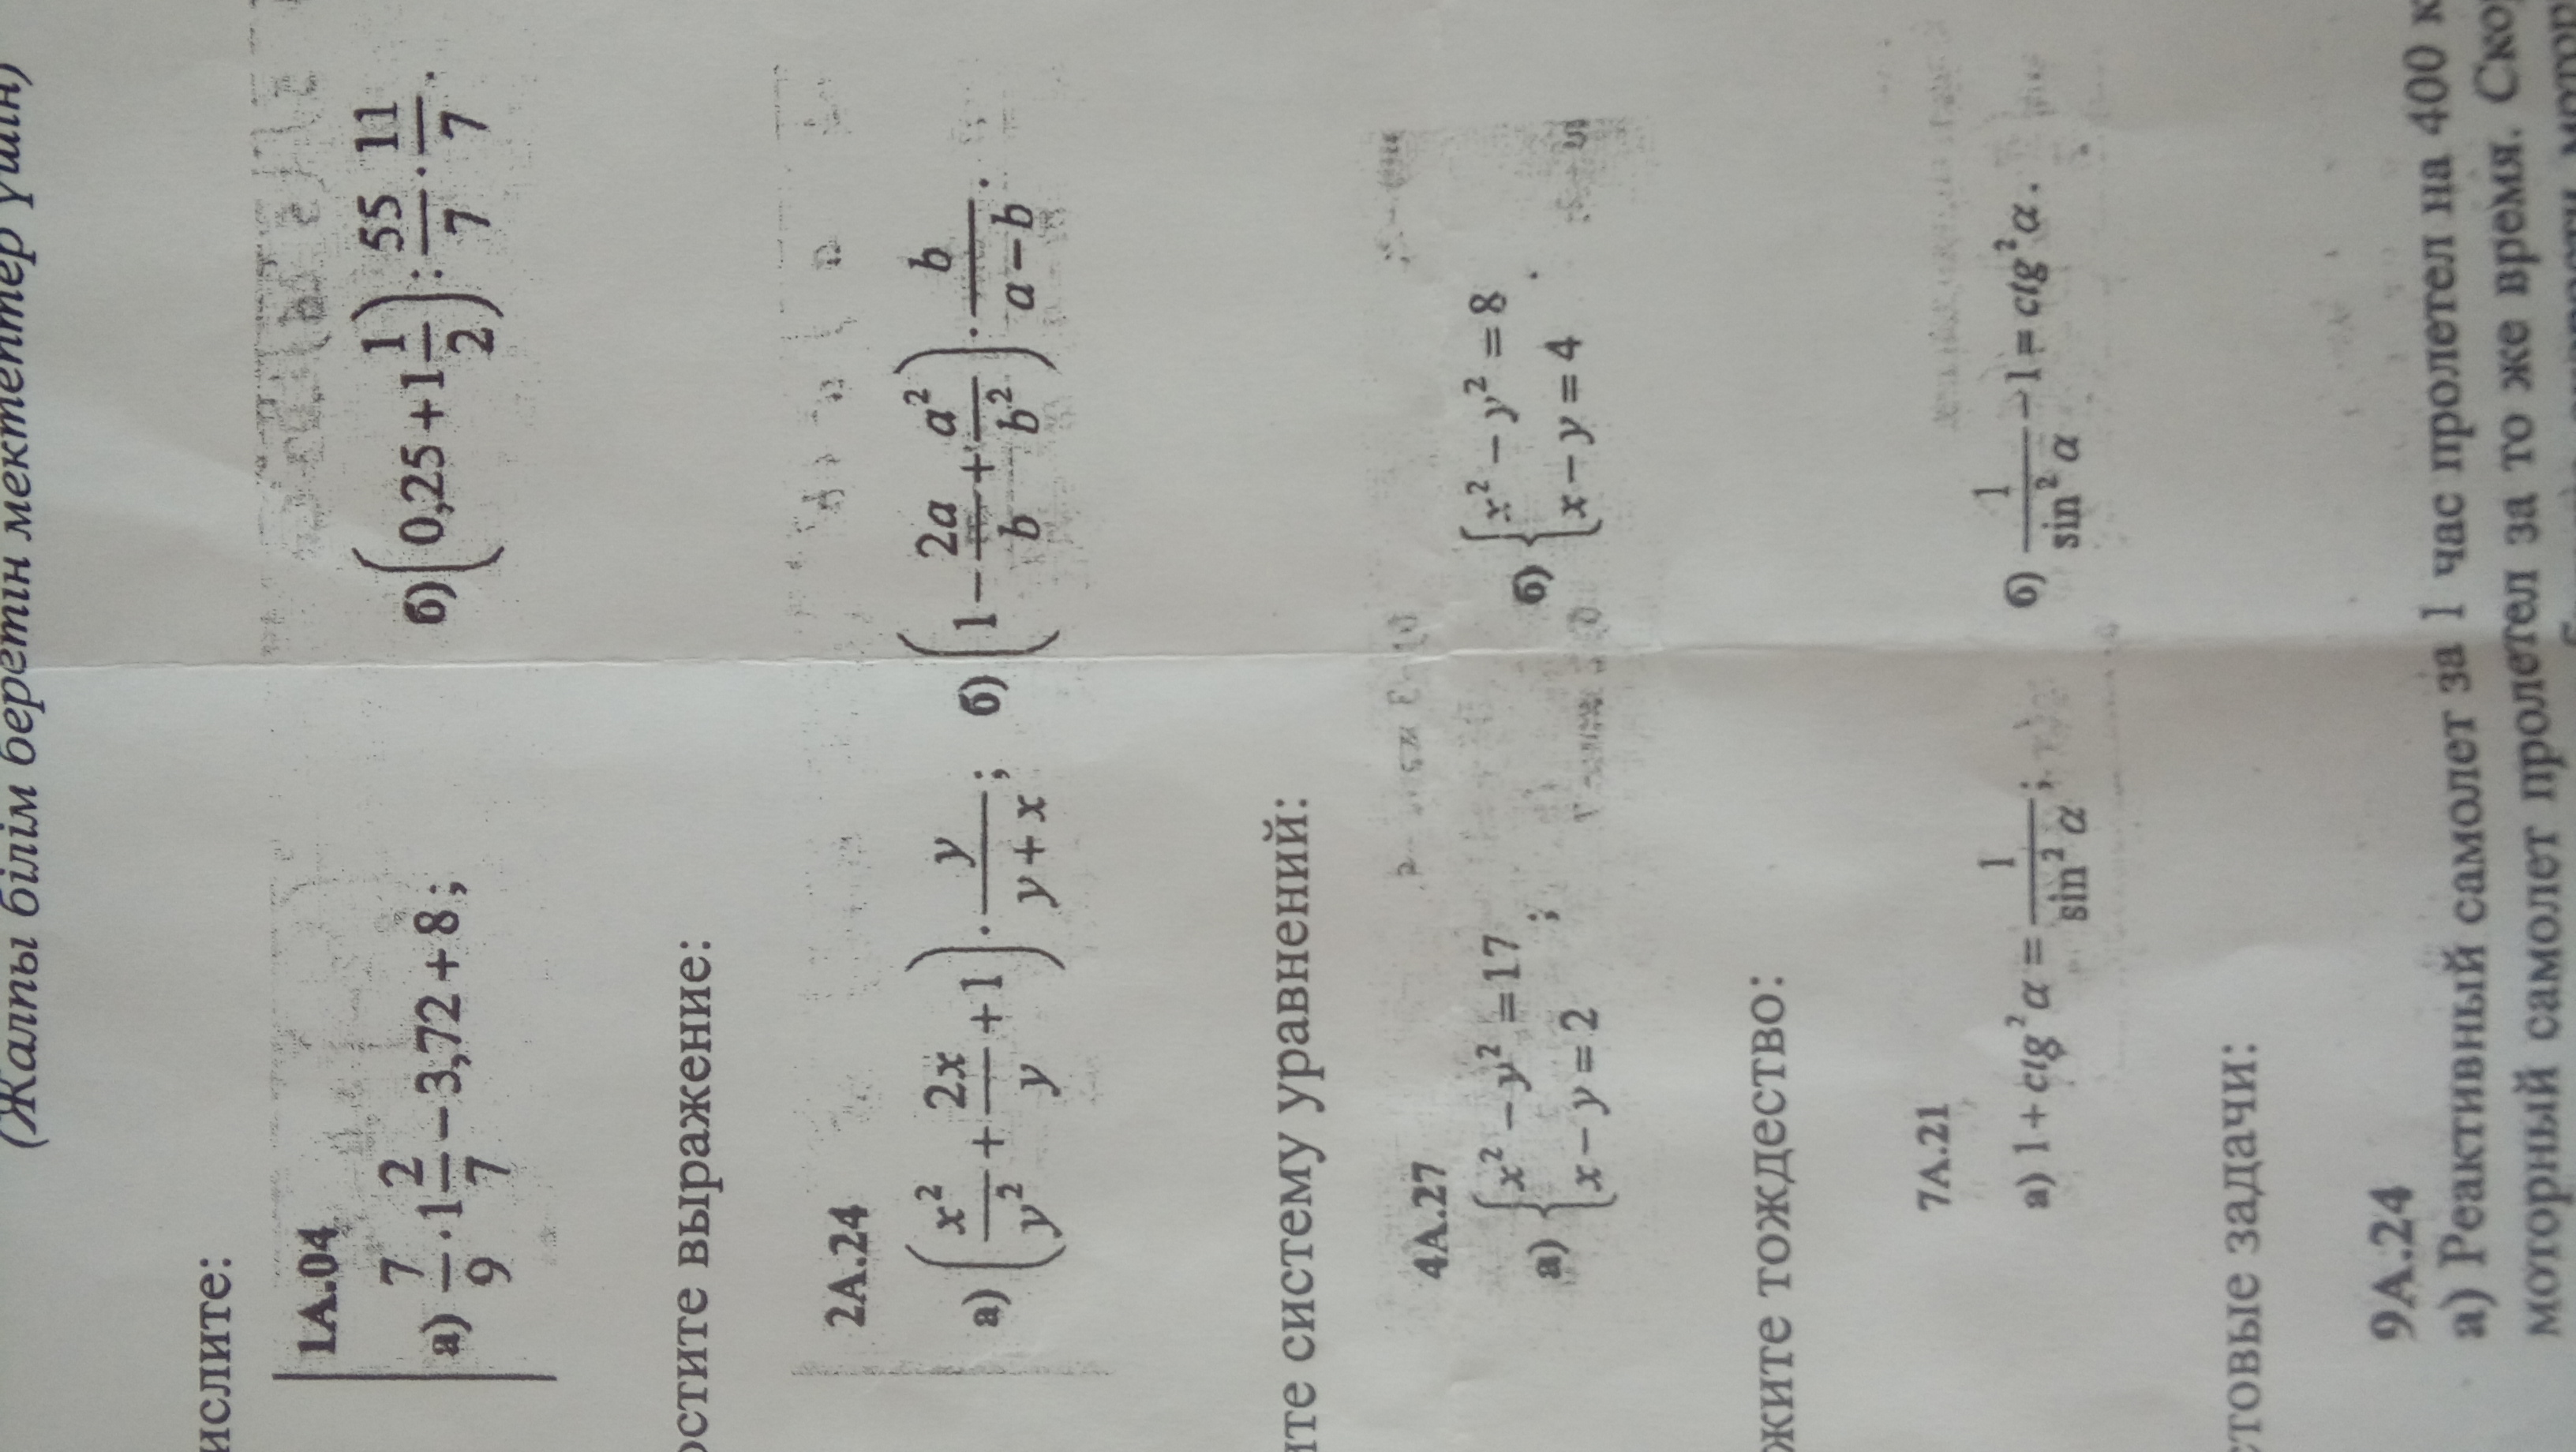 (Жалпы білім беретін мектептер үшін)
ислите:
1A.04
а) 7/9 · 1 2/7 − 3,72 + 8; б) (0,25 + 1 1/2) : 55/7 · 11/7.
остите выражение:
2A.24
а) (x²/y² + 2x/y + 1) · y/(y + x); б) (1 − 2a/b + a²/b²) · b/(a − b).
те систему уравнений:
4A.27
а) {x² − y² = 17, x − y = 2; б) {x² − y² = 8, x − y = 4.
жите тождество:
7A.21
а) 1 + ctg²α = 1/sin²α; б) 1/sin²α − 1 = ctg²α.
стовые задачи:
9A.24
а) Реактивный самолет за 1 час пролетел на 400 к
моторный самолет пролетел за то же время. Ско